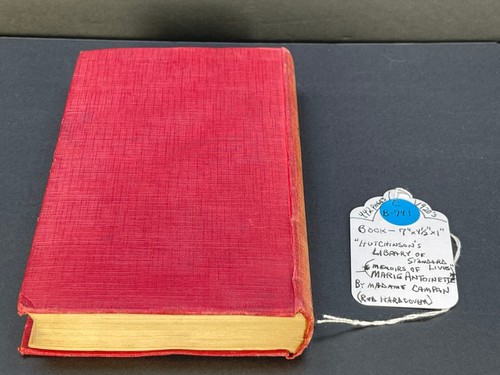 492 PAGES
C
1920's
B-741
BOOK - 7"x4½"x1"
"HUTCHINSON'S
LIBRARY OF
STANDARD
(MEMOIRS OF LIVES"
MARIE ANTOINETTE
BY MADAME CAMPAN
(RED HARDCOVER)